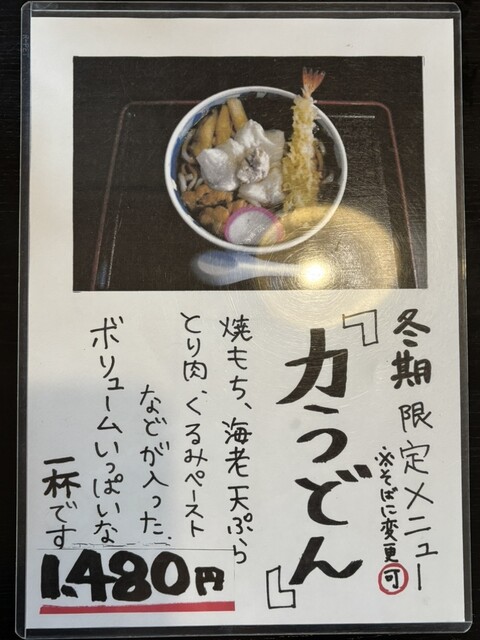 冬期限定メニュー
※そばに変更可
『力うどん』
焼もち、海老天ぷら
とり肉、くるみペースト
などが入った、
ボリュームいっぱいな
一杯です
1,480円